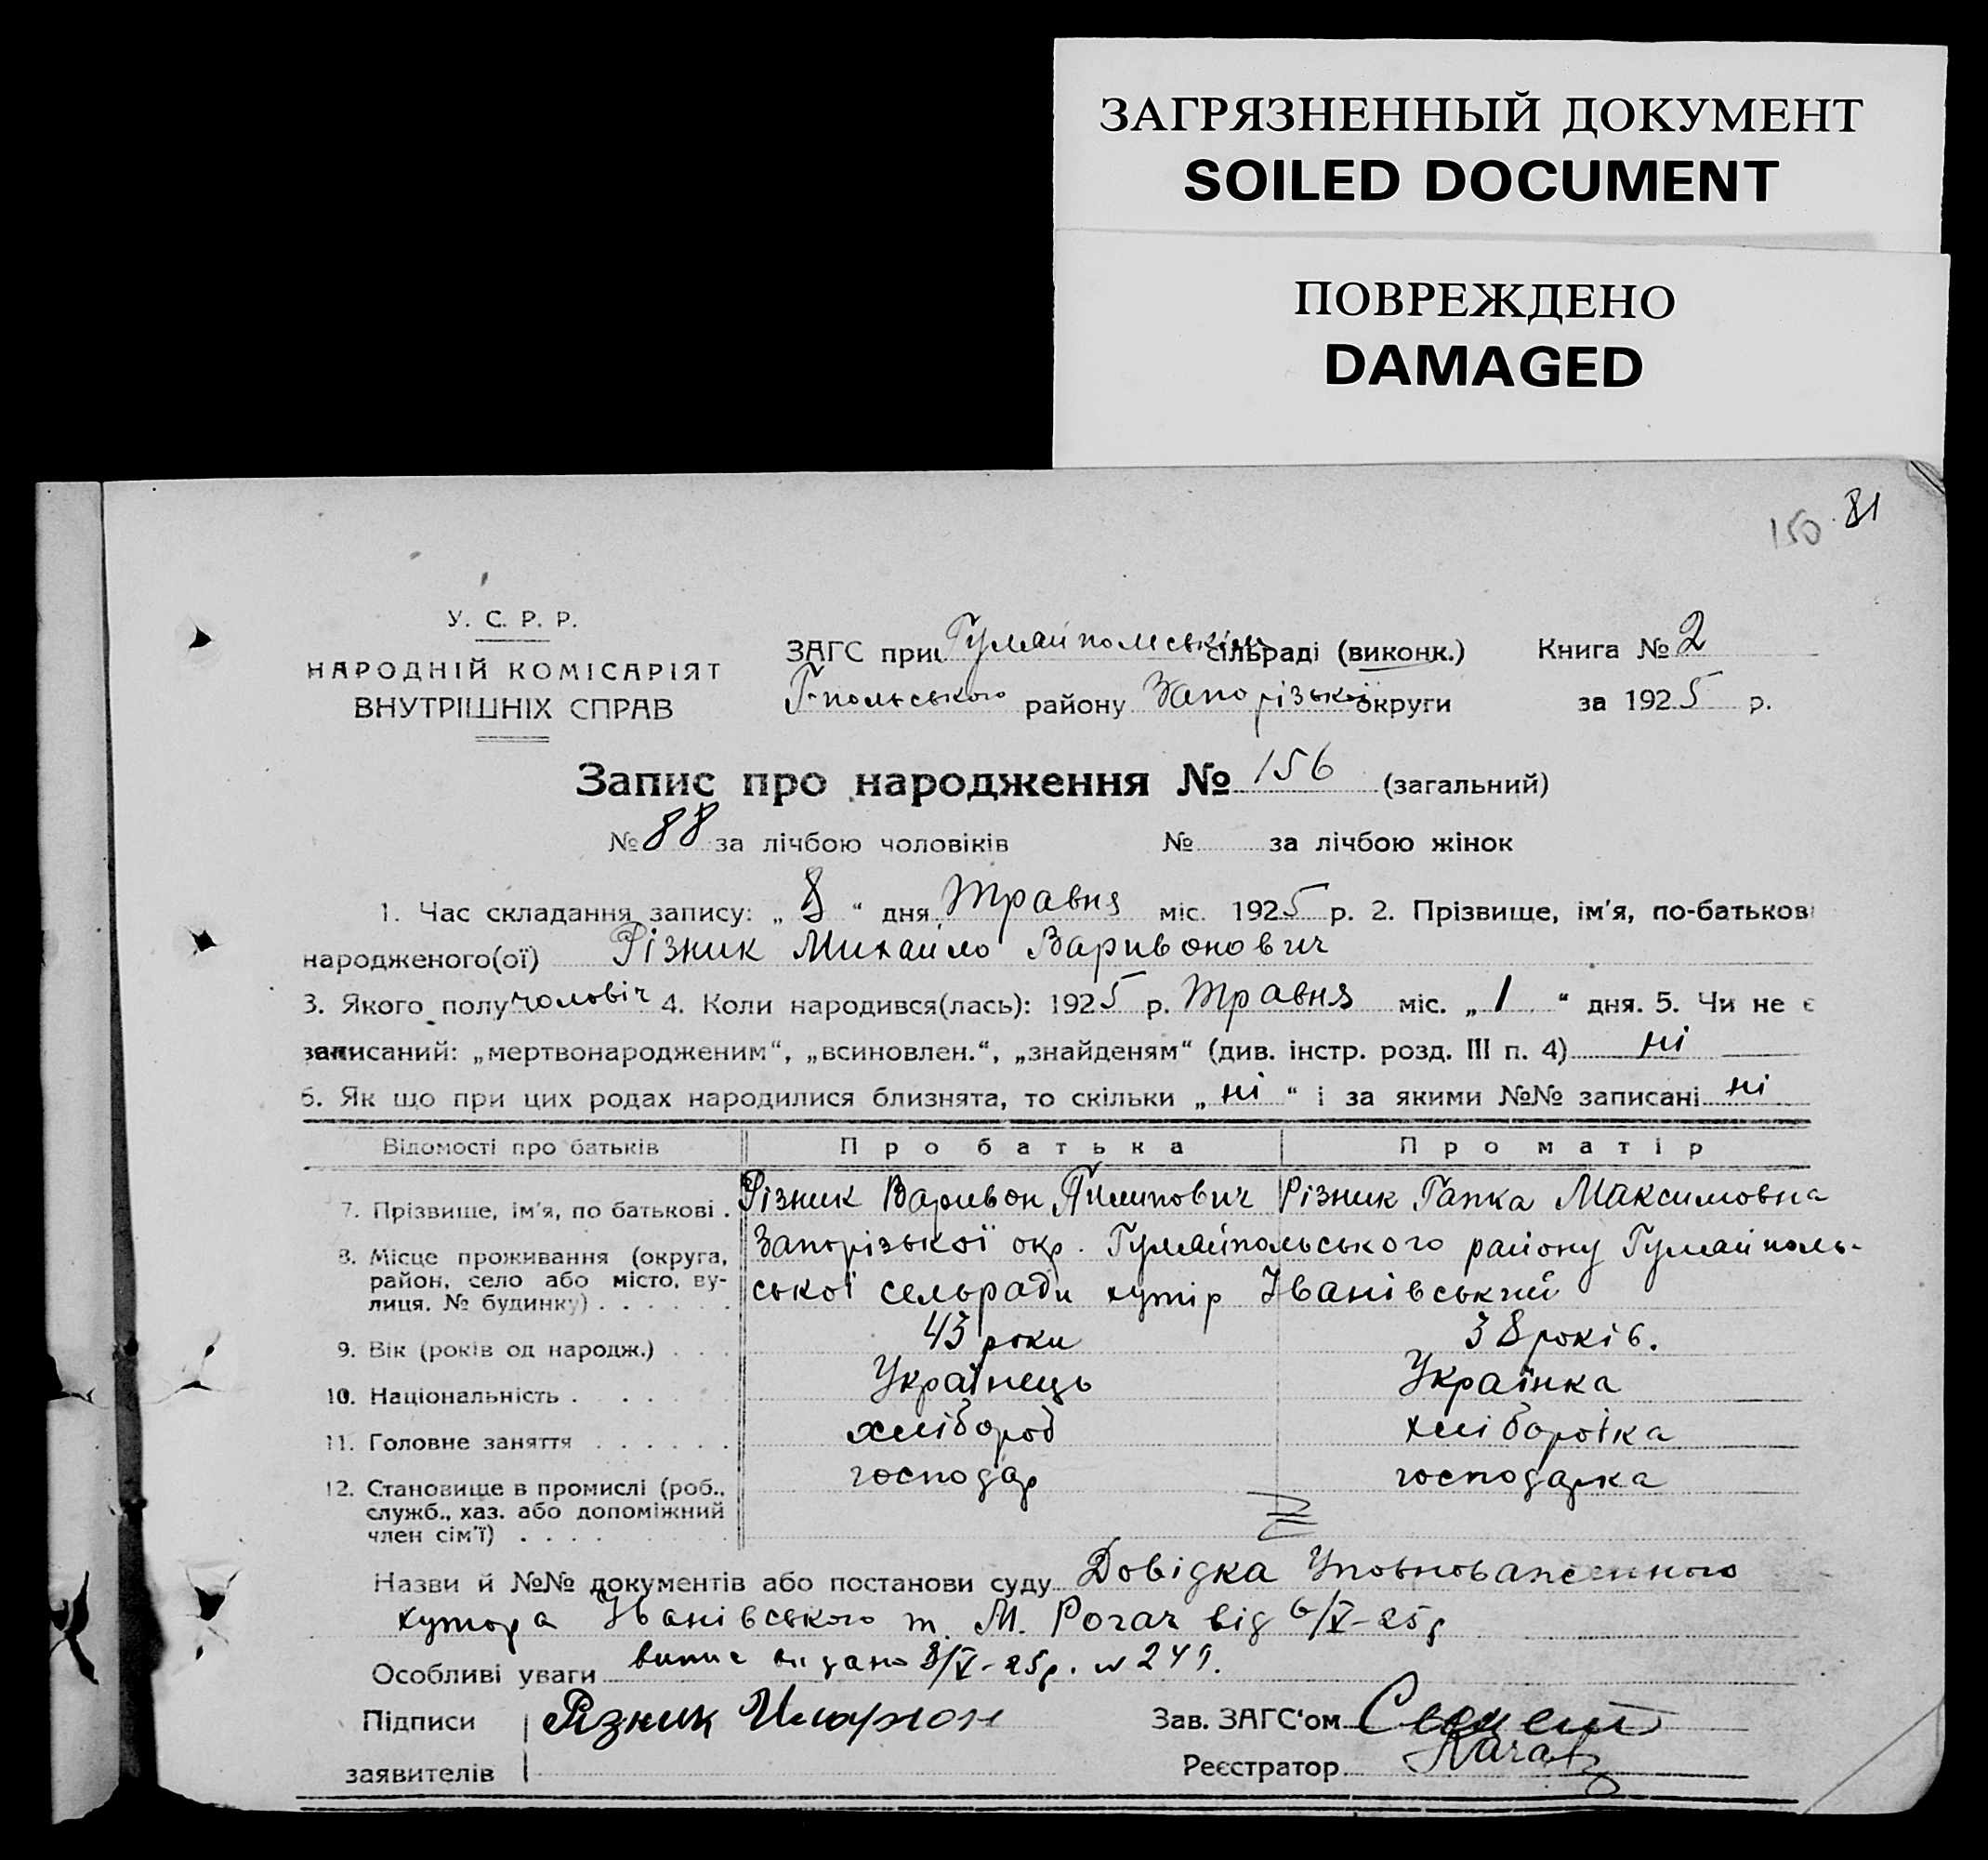 ЗАГРЯЗНЕННЫЙ ДОКУМЕНТ
SOILED DOCUMENT
ПОВРЕЖДЕНО
DAMAGED
150 81
У. С. Р. Р.
НАРОДНІЙ КОМІСАРІЯТ
ВНУТРІШНІХ СПРАВ
ЗАГС при Гуляйпольськім сільраді (виконк.) Книга № 2
Г-польського району Запорізької округи за 1925 р.
Запис про народження № 156 (загальний)
№ 88 за лічбою чоловіків № за лічбою жінок
1. Час складання запису: „ 8 “ дня Травня міс. 1925 р. 2. Прізвище, ім'я, по-батькові
народженого(ої) Різник Михайло Варивонович
3. Якого полу чоловіч 4. Коли народився(лась): 1925 р. Травня міс. „ 1 “ дня. 5. Чи не є
записаний: „мертвонародженим“, „всиновлен.“, „знайденям“ (див. інстр. розд. III п. 4) ні
6. Як що при цих родах народилися близнята, то скільки „ ні “ і за якими №№ записані ні
Відомості про батьків Про батька Про матір
7. Прізвище, ім'я, по батькові . Різник Варивон Пилипович Різник Гапка Максимовна
8. Місце проживання (округа, район, село або місто, вулиця, № будинку) . . . . . . Запорізької окр. Гуляйпольського району Гуляйполь-
ської сельради хутір Іванівський
9. Вік (років од народж.) . . . 43 роки 38 років.
10. Національність . . . . . Українець Українка
11. Головне заняття . . . . . . хлібороб хліборобка
12. Становище в промислі (роб., господар господарка
служб., хаз. або допоміжний
член сім'ї) . . . .
Назви й №№ документів або постанови суду Довідка Уповноваженного
хутора Іванівського т. М. Рогач від 6/V-25р
Особливі уваги випис видано 8/V-25р. № 249.
Підписи Різник Иларион Зав. ЗАГС'ом
заявителів Реєстратор